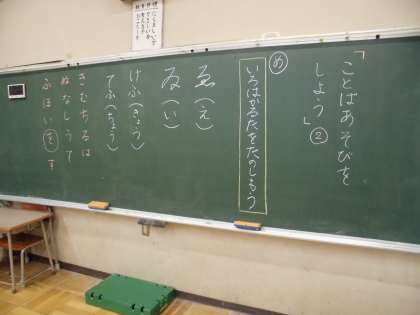 「ことばあそびを
しよう」②
め
いろはかるたをたのしもう
ゑ(え)
ゐ(い)
けふ(きょう)
てふ(ちょう)
ぬなしうて
ふほいをす